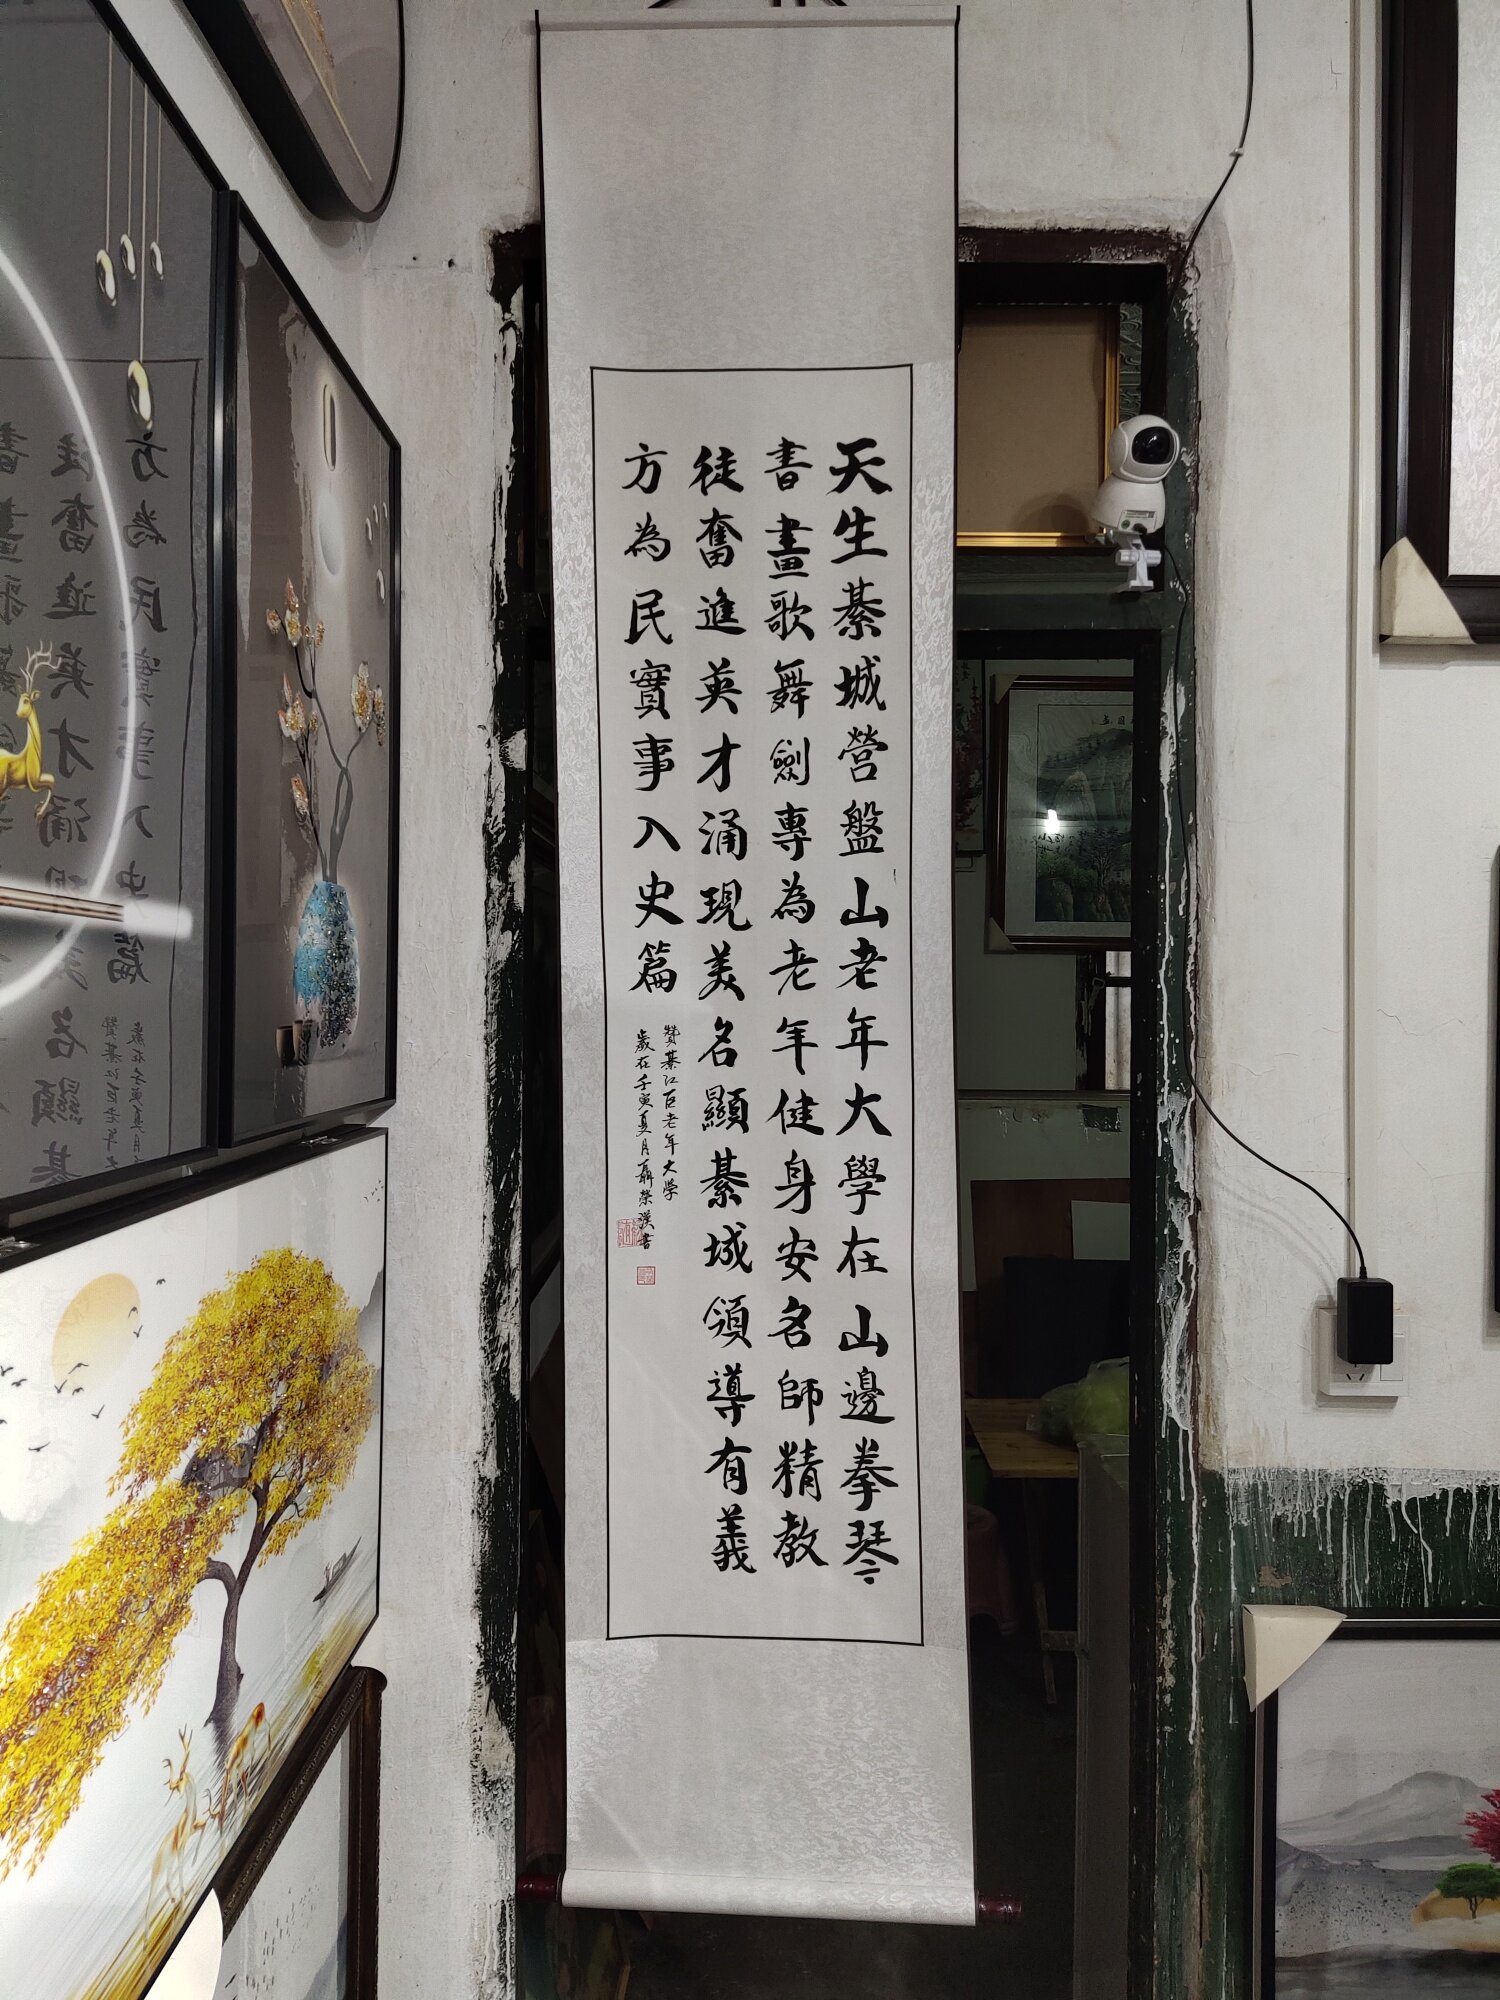 天生綦城營盤山老年大學在山邊拳琴
書畫歌舞劍專為老年健身安名師精教
徒奮進英才涌現美名顯綦城領導有義
方為民實事入史篇
贊綦江区老年大学
歲在壬寅夏月聶榮漢書